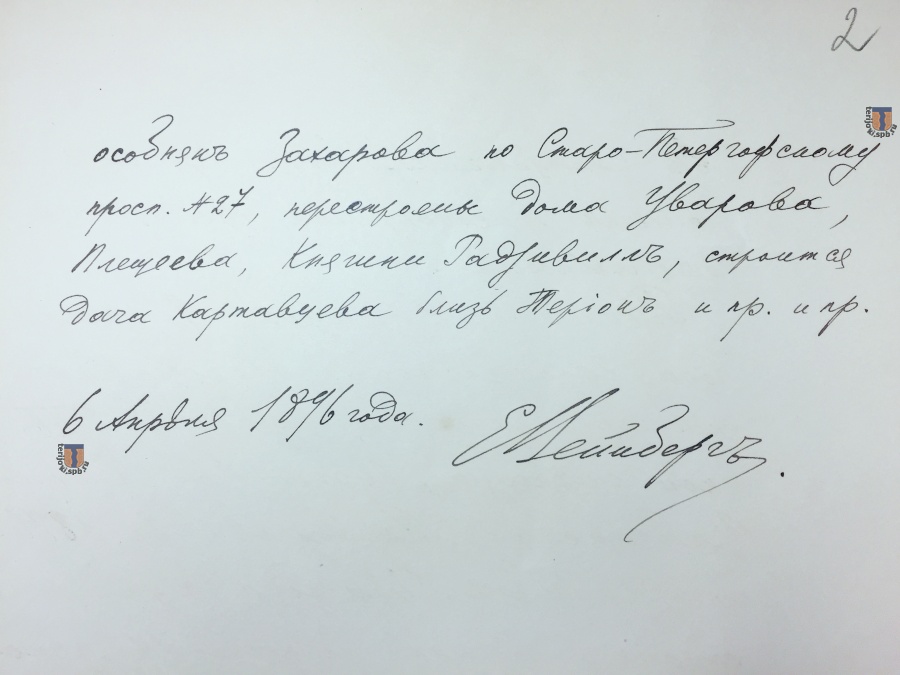 2
особнякъ Захарова по Старо-Петергофскому
просп. №27, перестроены дома Уварова,
Плещеева, Княгини Радзивиллъ, строится
дача Картавцева близъ Теріокъ и пр. и пр.
6 Апрѣля 1896 года.
ЕВейнбергъ.
terijoki.spb.ru
terijoki.spb.ru